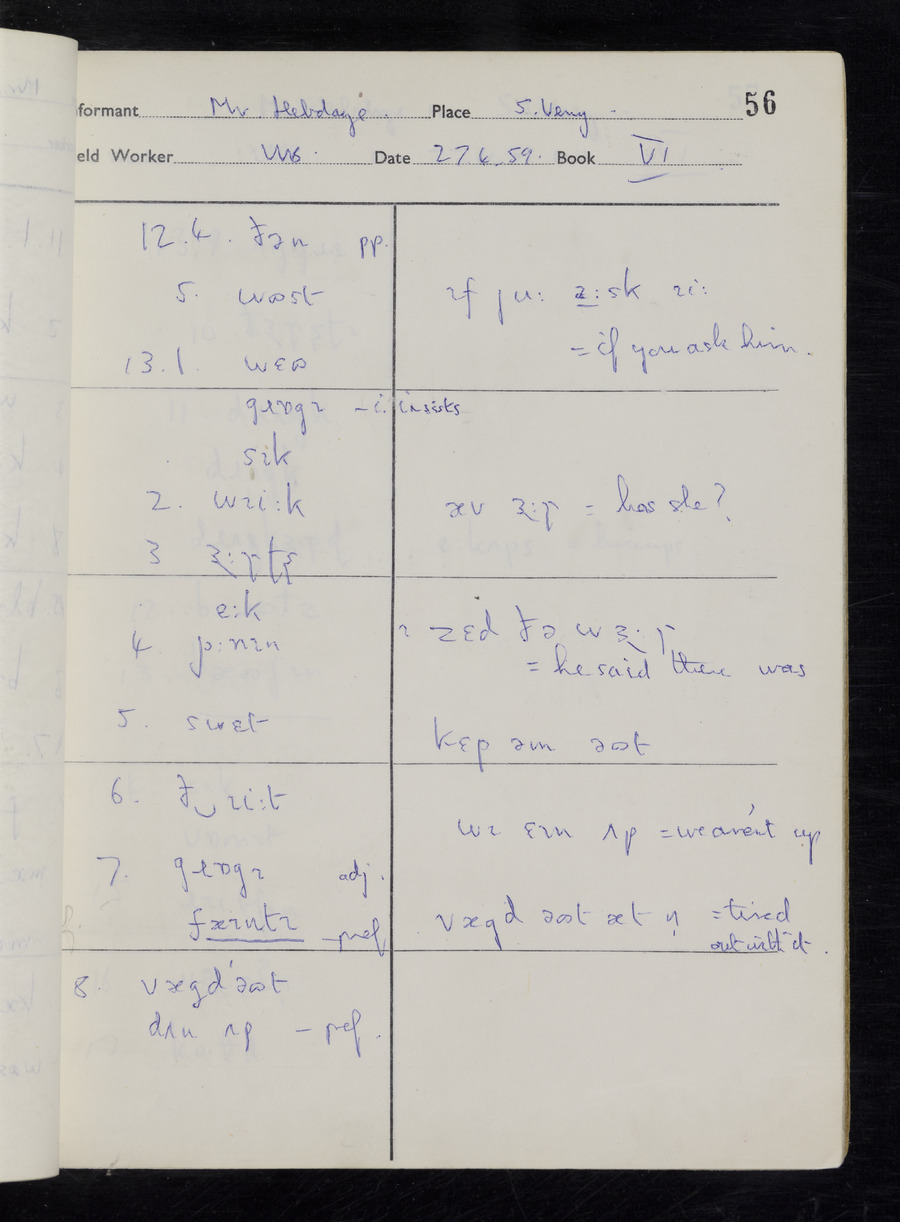 formant Mr. Hebdage. Place S. Veny 56
eld Worker WB. Date 27 6.59. Book VI
12.4. ðən pp.
5. wɒst
13.1. wɛɒ
grɒgɪ – i. insists
sɪk
2. wɪi:k
3
e:k
4.
5. swɛt
6. ð‿ɪi:t
7. grɒgɪ adj.
fæɪntɪ – pref
8. vægd'əɒt
dʌn ʌp – pref.
ɪf ju: a:sk ɪi:
= if you ask him.
æv = has she?
ɪ zɛd ðə
= he said there was
kɛp əm əɒt
wɪ ɛɪn ʌp = we aren't up
vægd əɒt æt n̩ = tired
out with it.